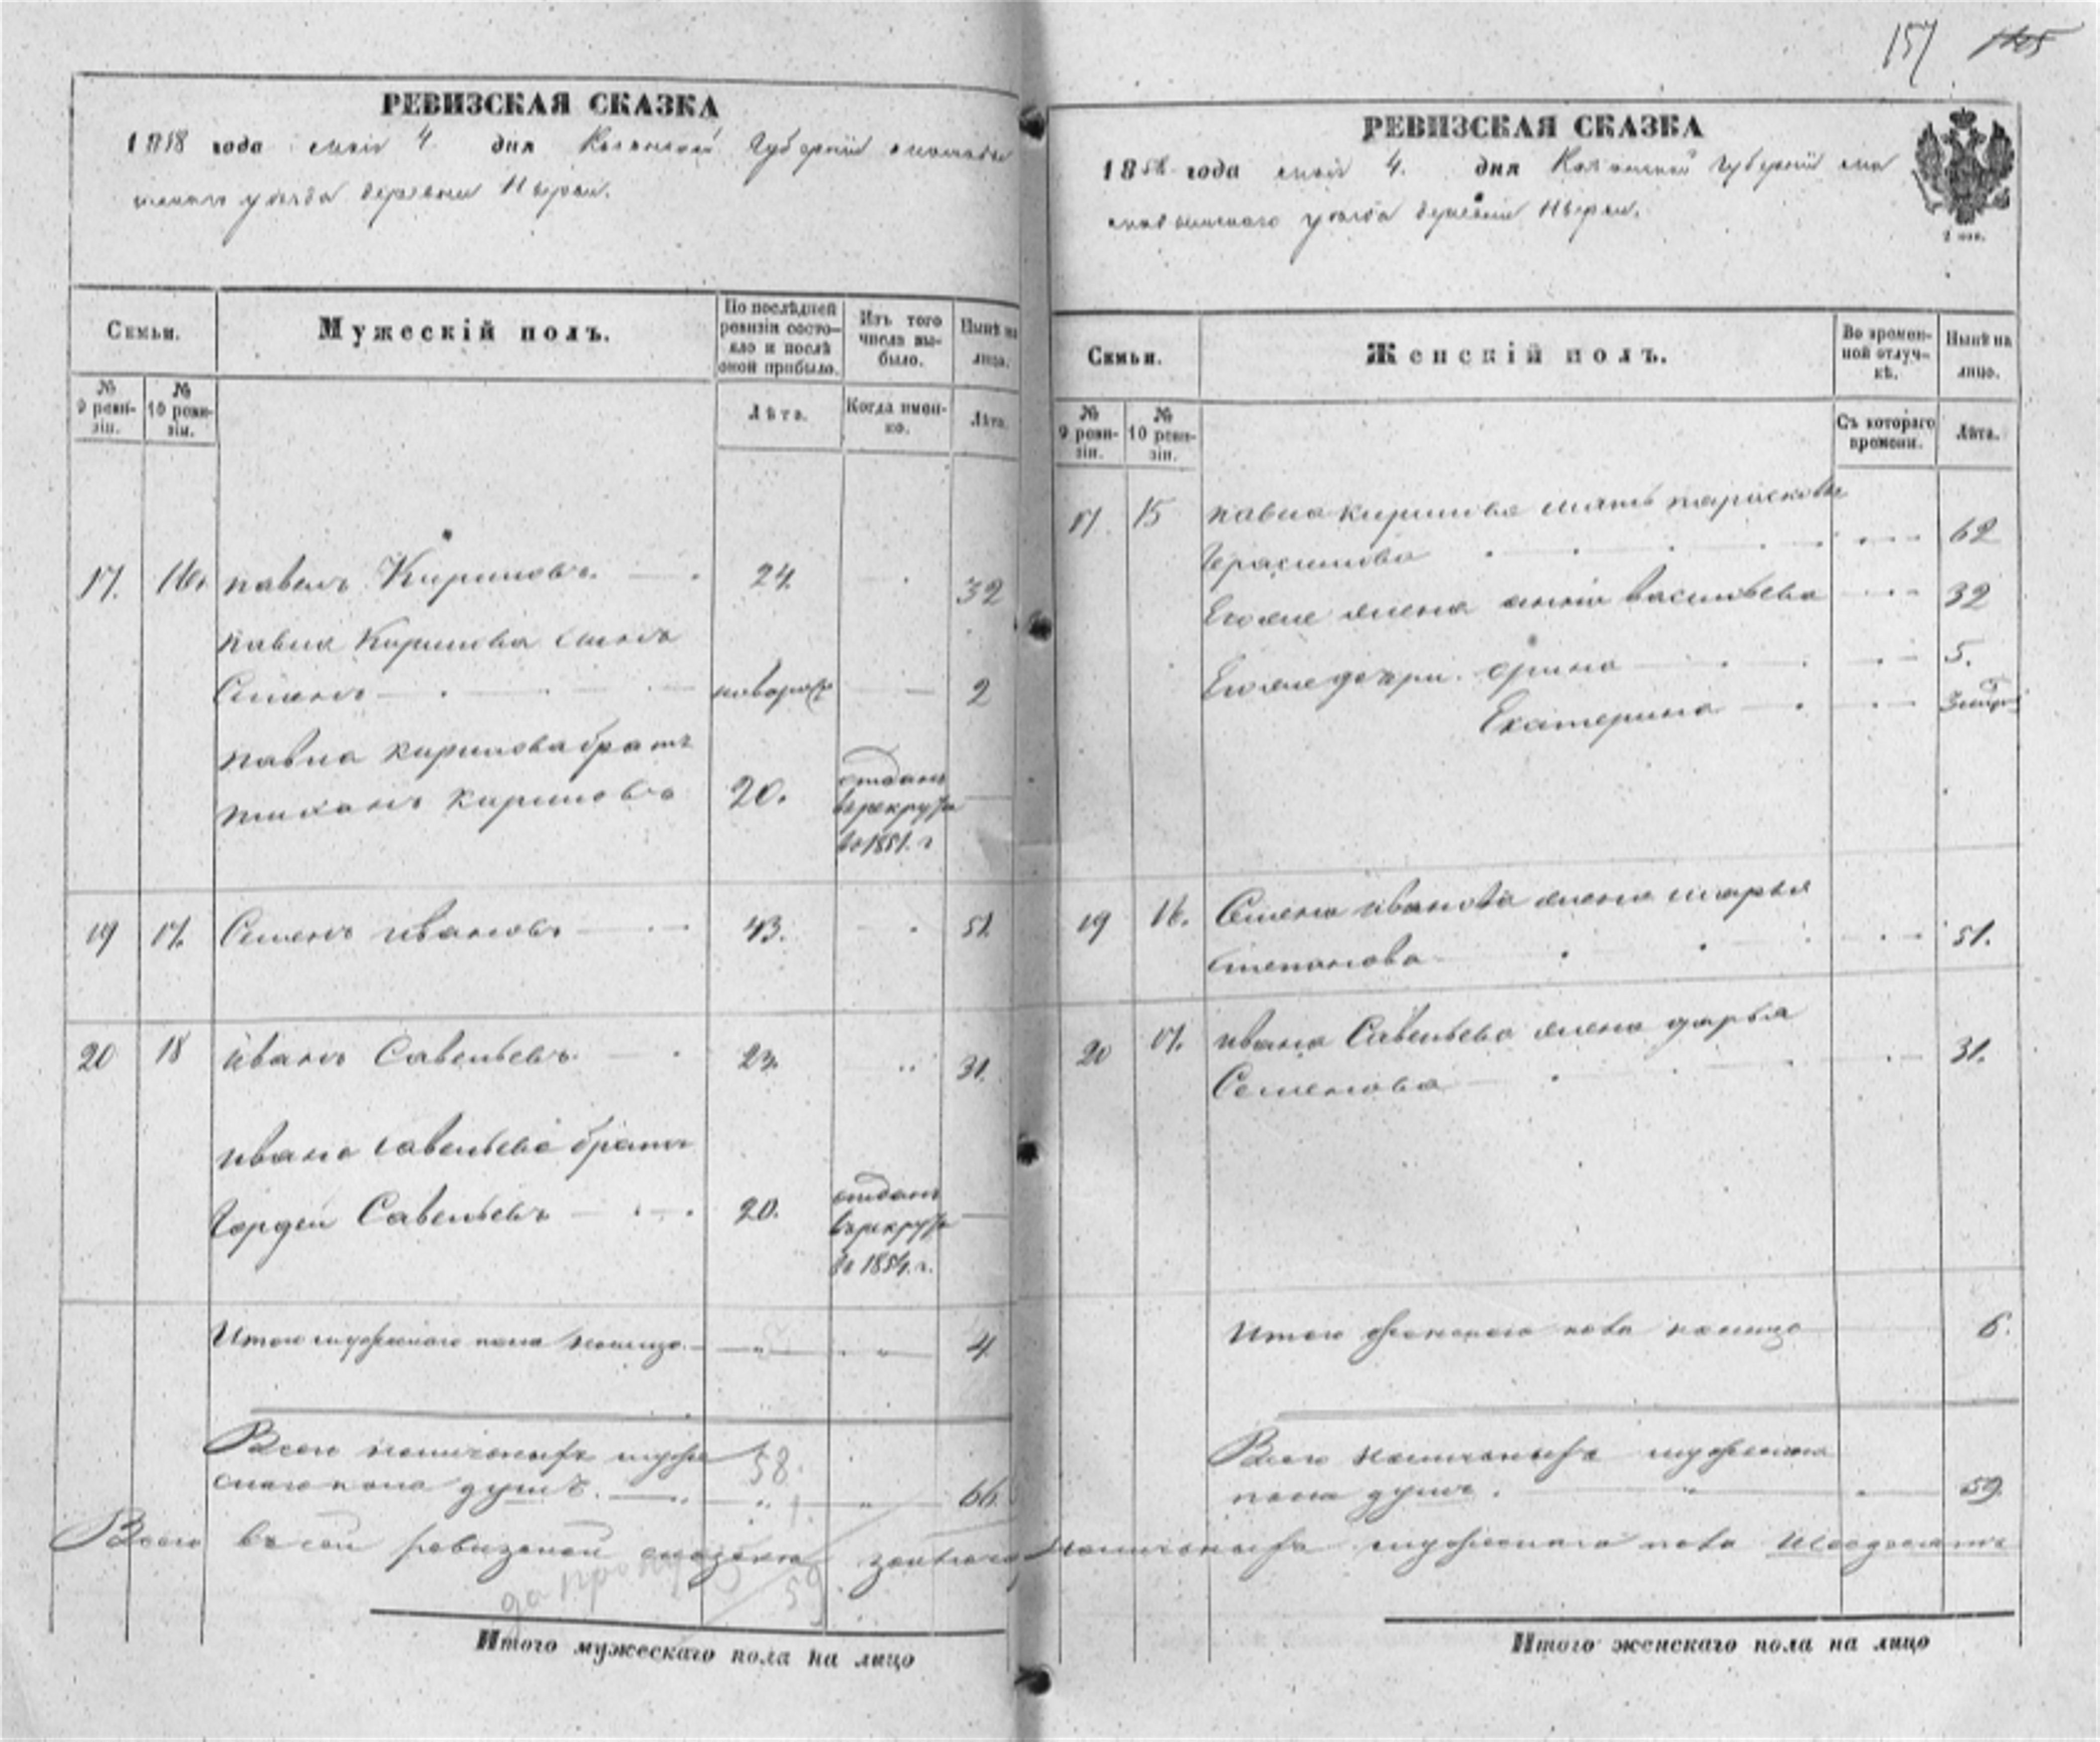 157
РЕВИЗСКАЯ СКАЗКА
1858 года маія 4 дня Казанской Губерніи
уѣзда деревни Нырьи.
Семьи.
Мужескій полъ.
По послѣдней ревизіи состо-
яло и послѣ
оной прибыло.
Изъ того
числа вы-
было.
Нынѣ на
лицо.
№
9 реви-
зіи.
№
10 реви-
зіи.
Лѣта.
Когда имен-
но.
Лѣта.
17. 16. Павелъ Кириловъ. 24. 32
Павла Кирилова сынъ
Семенъ новорож 2
Павла Кирилова братъ
Тихонъ Кириловъ 20. отданъ
в рекруты
в 1851. г
19 17. Семенъ Ивановъ 43. 51.
20 18 Иванъ Савельевъ 23. 31.
Ивана Савельева братъ
Гордей Савельевъ 20. отданъ
в рекруты
в 1854. г.
Итого мужескаго пола налицо 4
Всего наличныхъ муже
скаго пола душъ. 66.
58
59
Всего въ сей ревизской сказки
Итого мужескаго пола на лицо
РЕВИЗСКАЯ СКАЗКА
1858 года маія 4. дня Казанской Губерніи ма
мадышскаго уѣзда деревни Нырьи.
2 коп.
Семьи.
Женскій полъ.
Во времен-
ной отлуч-
кѣ.
Нынѣ на
лицо.
№
9 реви-
зіи.
№
10 реви-
зіи.
Съ котораго
времени.
Лѣта.
17 15 Павла Кирилова мать Парасковья
Герасимова 62
Его же жена Васильева 32
Его же дочери. Ирина 5.
Екатерина
19 16. Семена Иванова жена Марья
Степанова 51.
20 17. Ивана Савельева жена Дарья
Семенова 31.
Итого женскаго пола налицо 6.
Всего наличныхъ
пола душъ. 59.
наличныхъ мужескаго пола Шесдесятъ
Итого женскаго пола на лицо